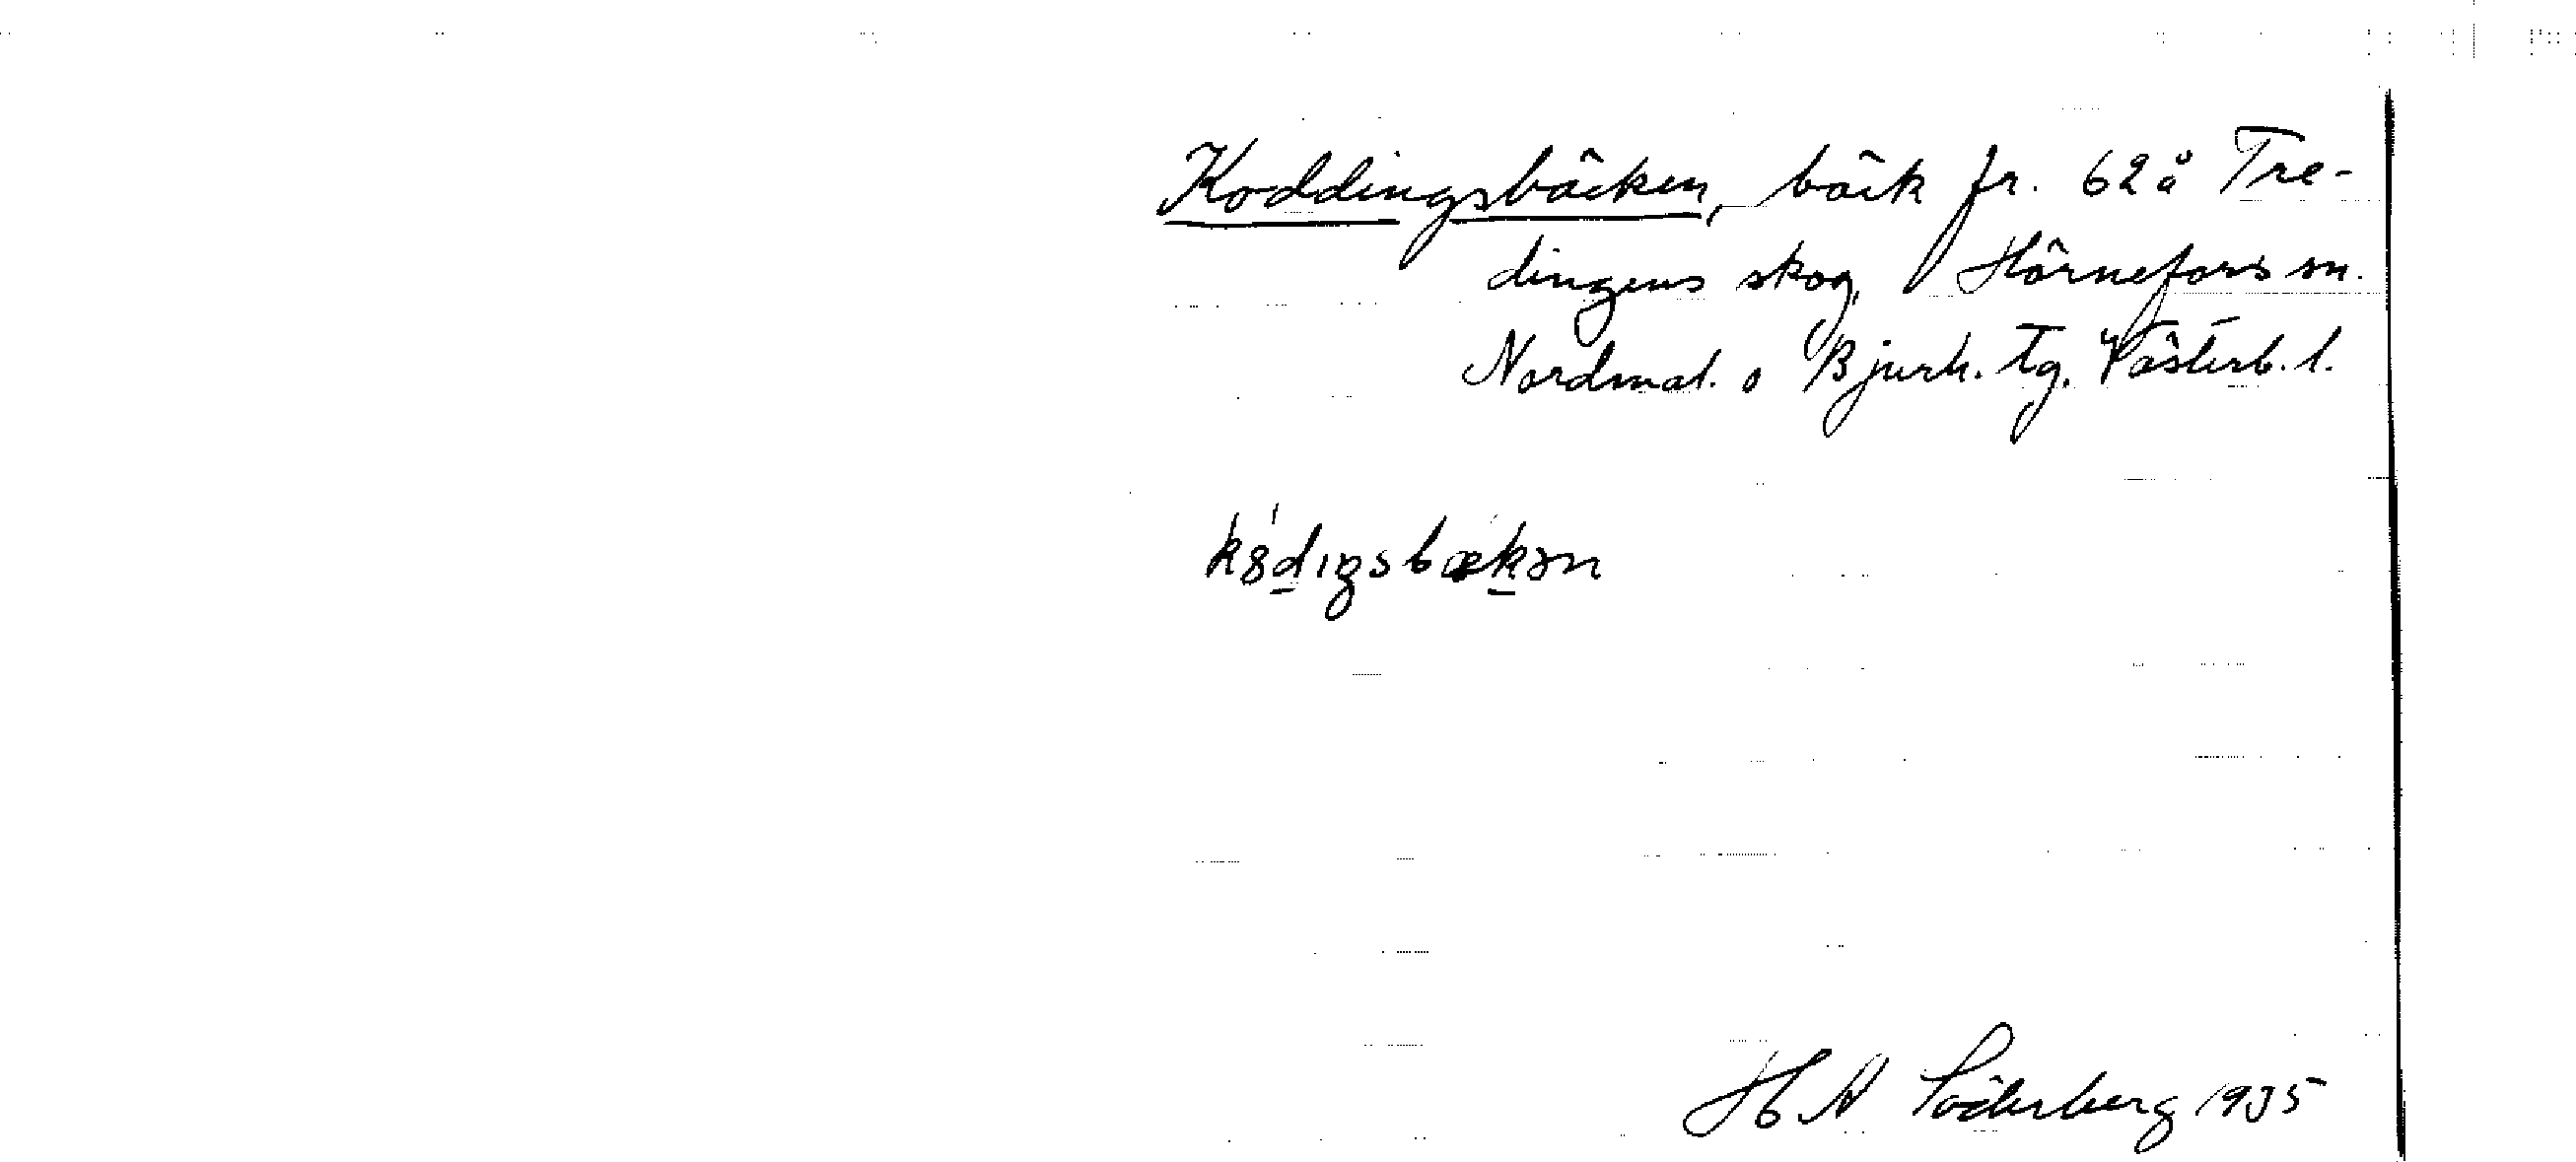 Koddingsbäcken, bäck fr. 62 å Tre-
dingens skog, Hörnefors sn.
Nordmal. o Bjurh. tg. Västerb. l.
k8dıgsbækən
H A Söderberg 1935